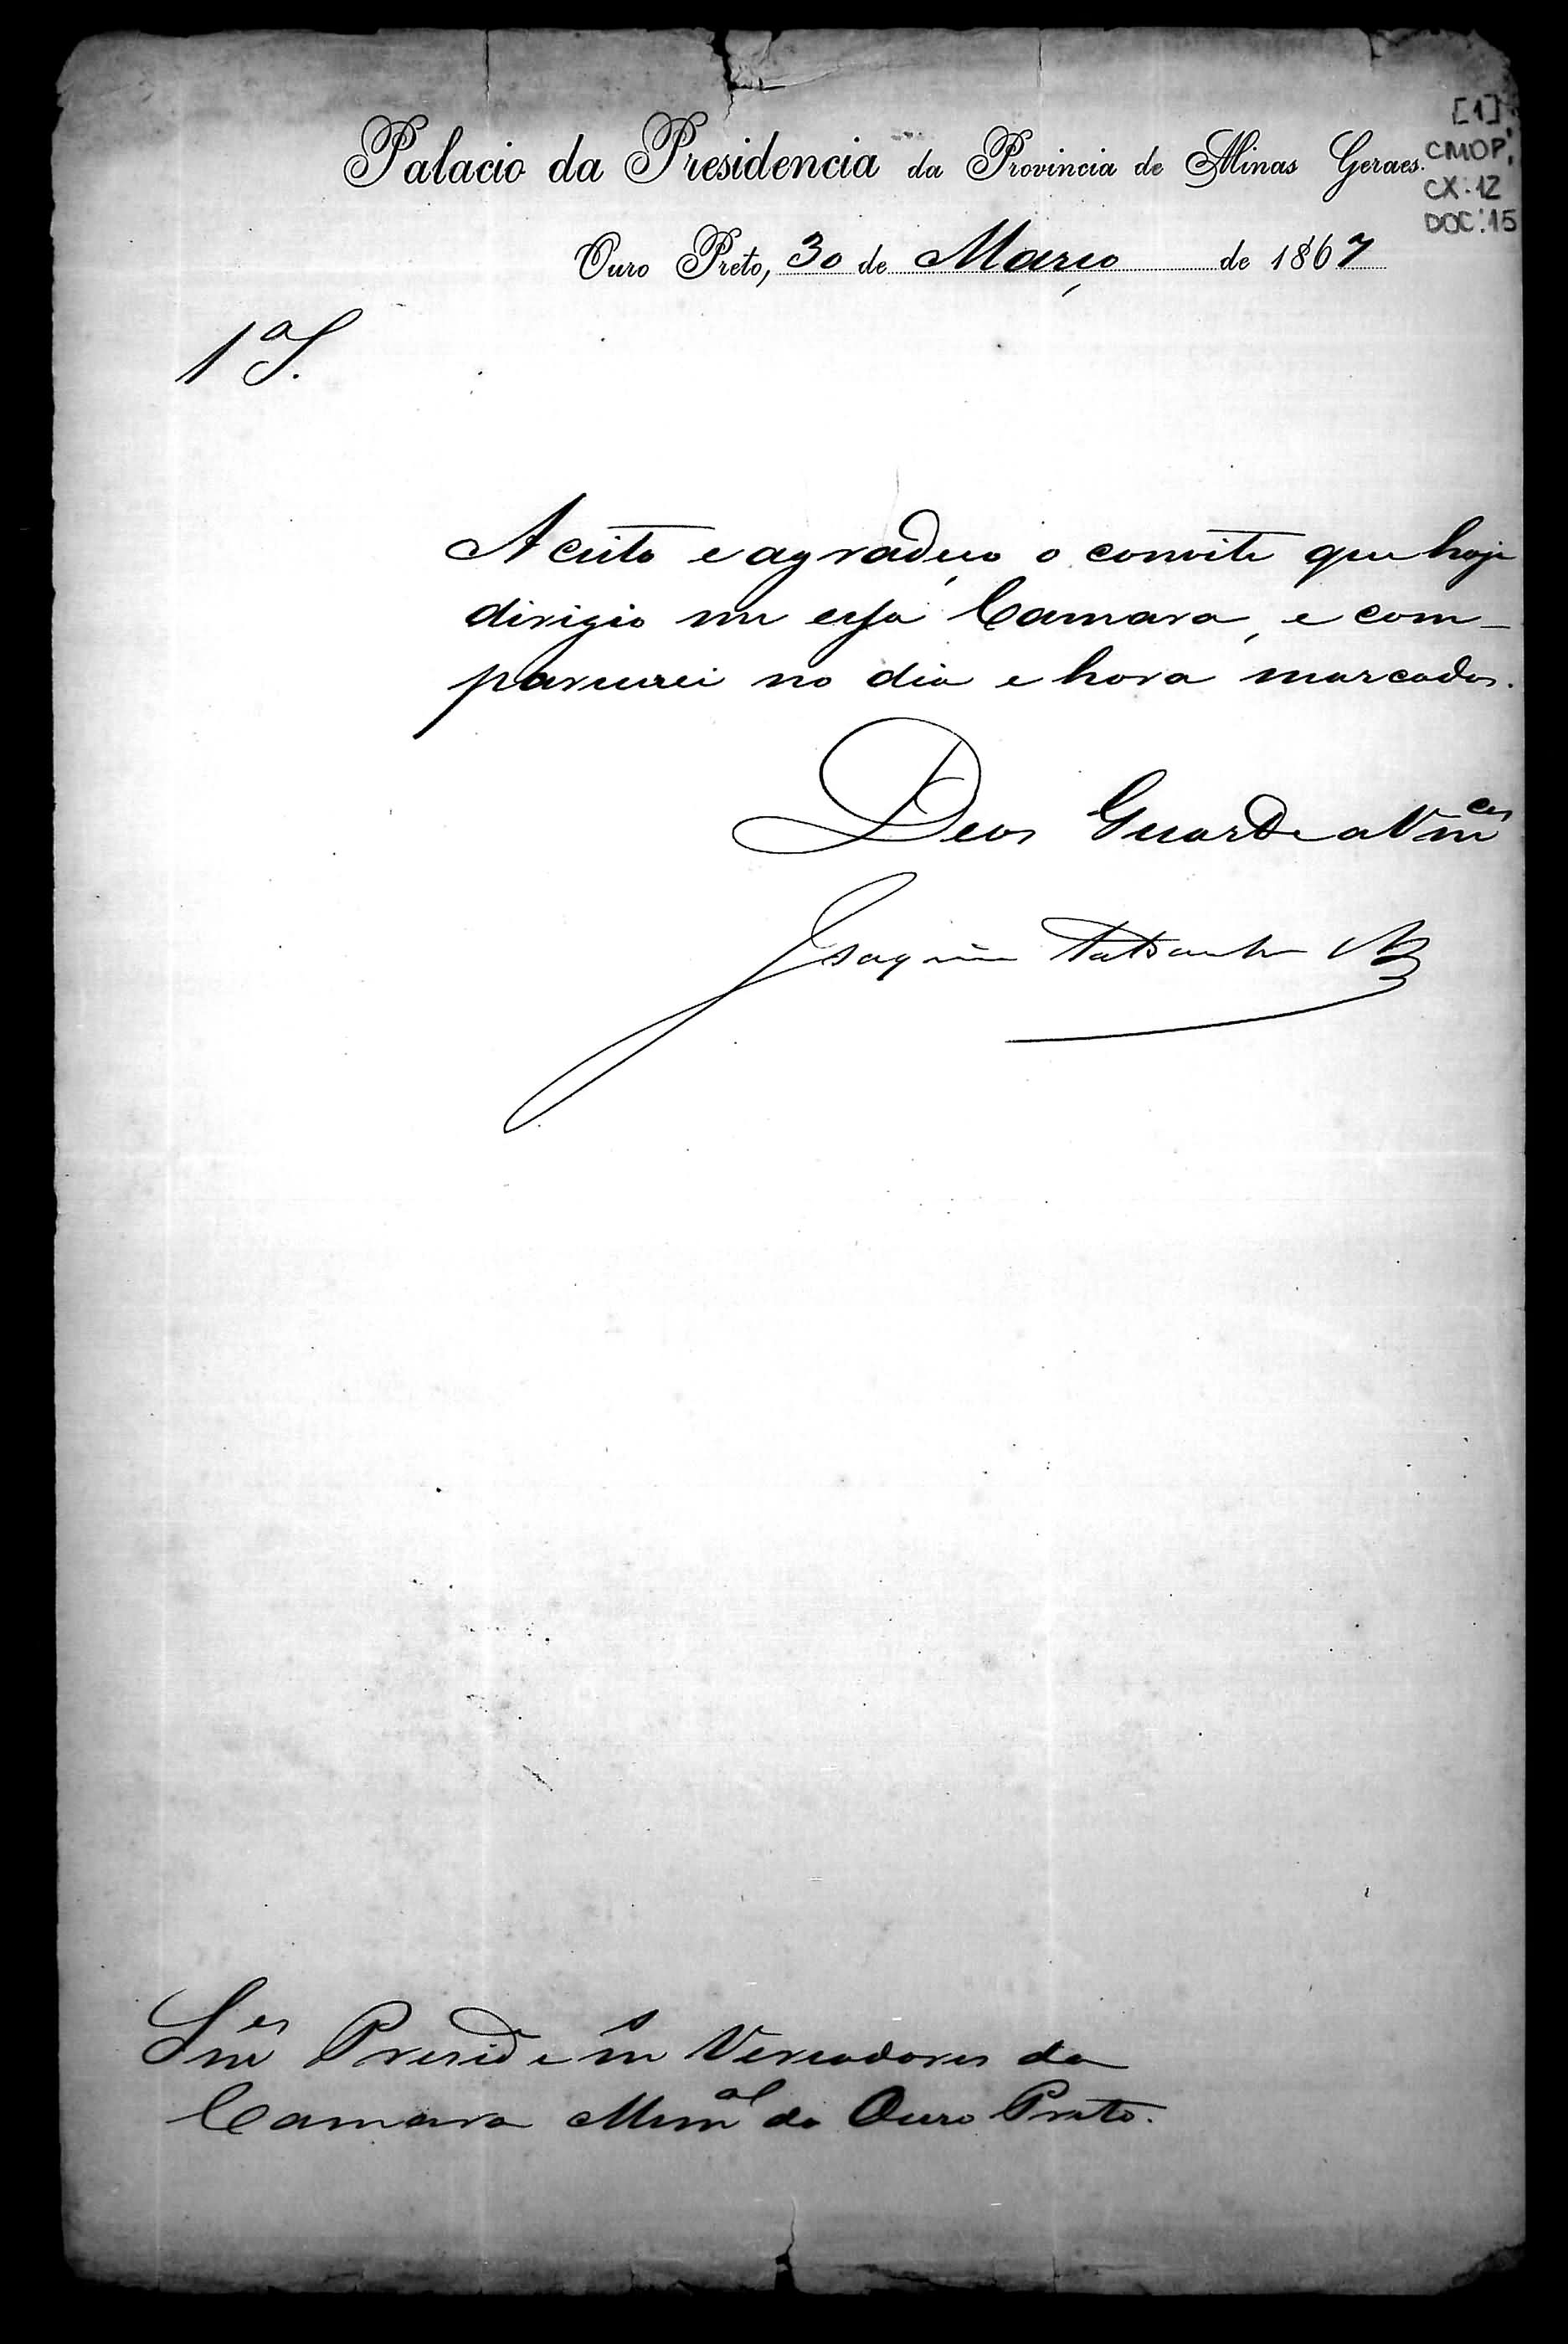 [1]
CMOP,
CX.12
DOC.15
Palacio da Presidencia da Provincia de Minas Geraes.
Ouro Preto, 30 de Março de 1867
1ª S.
Aceito e agradeço o convite que hoje
dirigio me essa Camara, e com-
parecerei no dia e hora marcados.
Deos Guarde a Vmces
Joaquim
Snres Preside Vereadores da
Camara Munal do Ouro Preto.